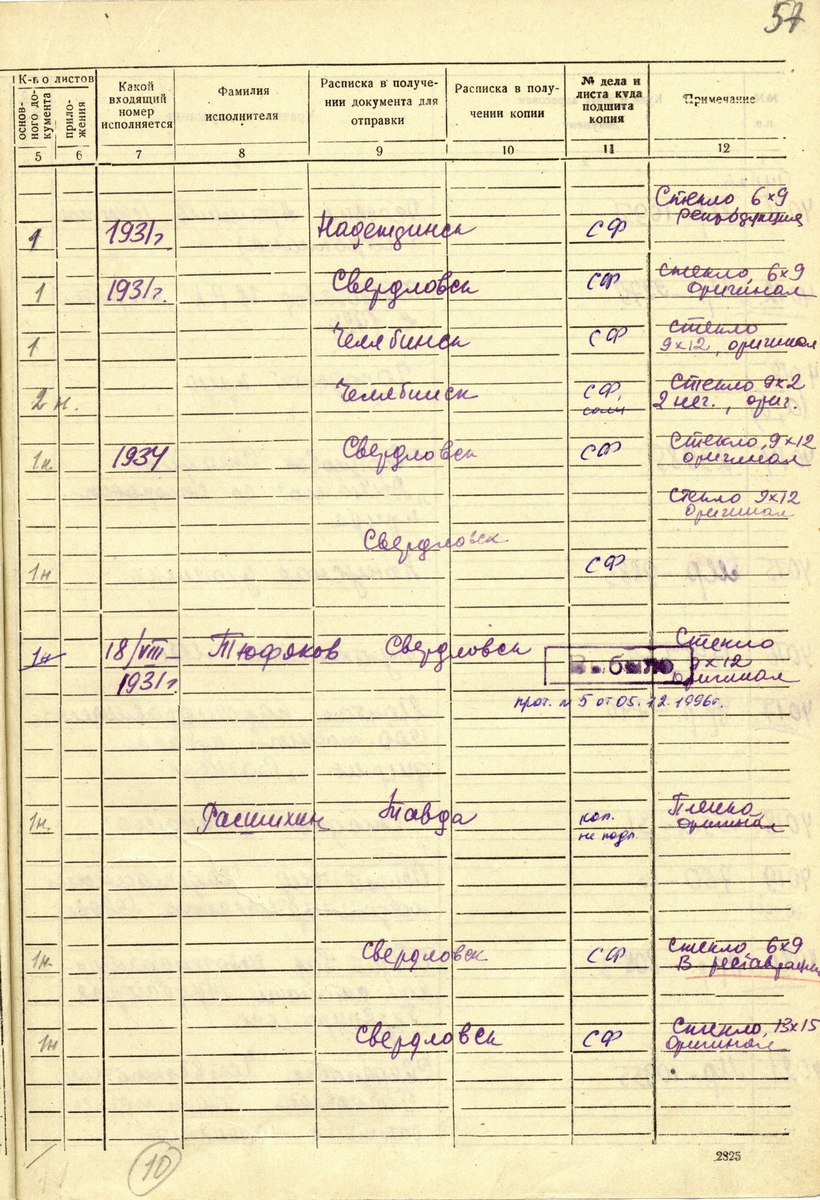 57
К-во листов
основного документа
приложения
Какой входящий номер исполняется
Фамилия исполнителя
Расписка в получении документа для отправки
Расписка в получении копии
№ дела и листа куда подшита копия
Примечание
5 6 7 8 9 10 11 12
Стекло 6×9
1 1931г. Надеждинск СФ репродукция
1 1931г. Свердловск СФ Стекло 6×9
оригинал
1 Челябинск СФ Стекло
9×12, оригинал
2 н. Челябинск СФ, Стекло 9×2
2 нег., ориг.
1н. 1934 Свердловск СФ Стекло, 9×12
оригинал
Стекло 9×12
оригинал
Свердловск
1н СФ
1н 18/VIII– Тюфяков Свердловск Выбыло Стекло
9×12
1931г. оригинал
прот. №5 от 05.12.1996г.
1н. Расшихин Тавда кол. Пленка
не подл. оригинал
1н. Свердловск СФ Стекло 6×9
В реставрации
1н Свердловск СФ Стекло, 13×15
Оригинал
10
2825